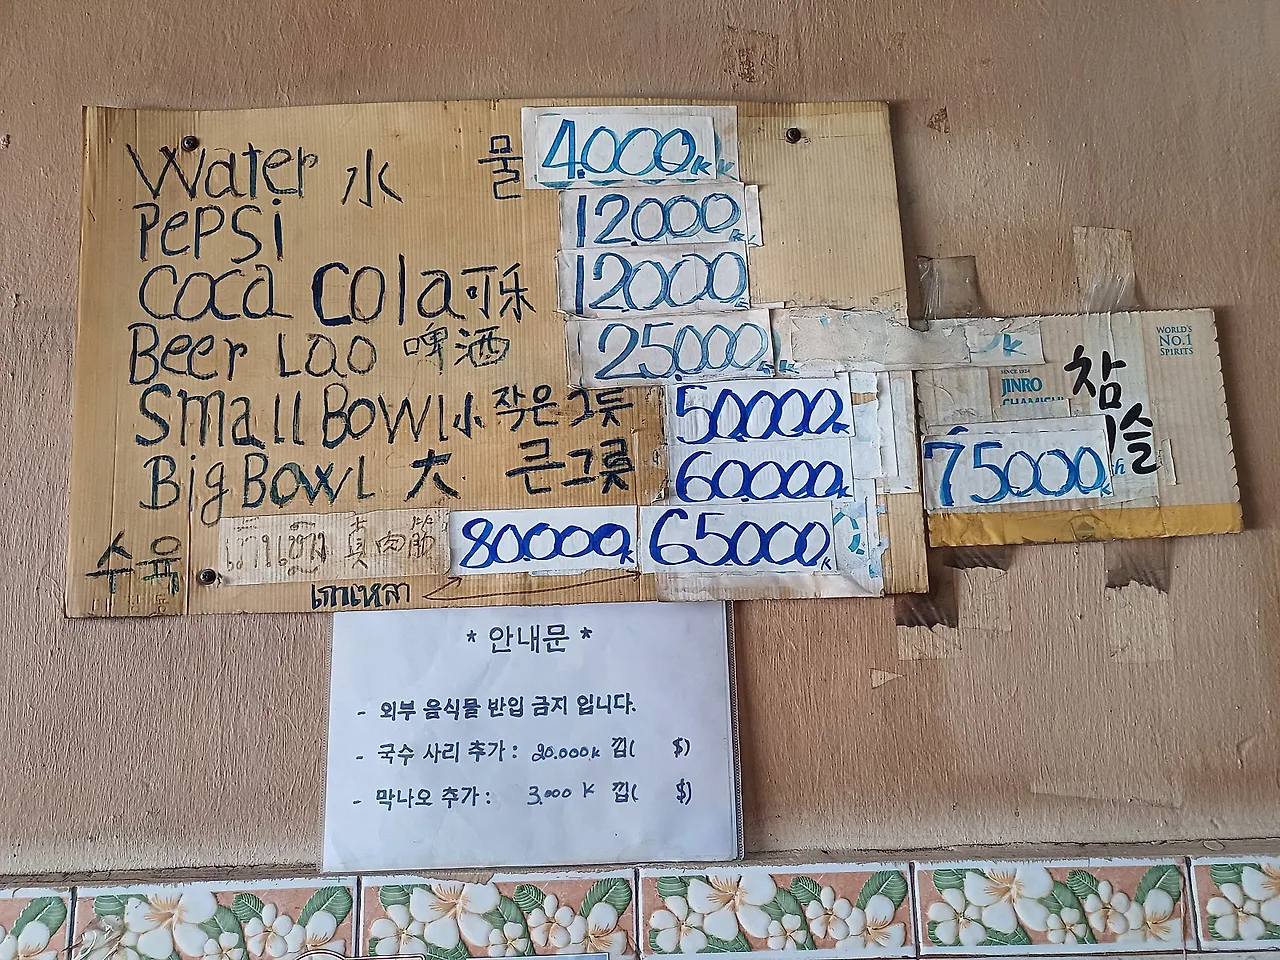 Water 水 물 4.000k
PePSi 12.000k
Coca Cola 可乐 12.000
Beer Lao 啤酒 25.000k
Small Bowl 小 작은그릇 50.000k
Big Bowl 大 큰그릇 60.000k
수육 80.000k 65.000k
เกาเหลา
WORLD'S
No.1
SPIRITS
SINCE 1924
JINRO
참
슬
75000k
* 안내문 *
- 외부 음식물 반입 금지 입니다.
- 국수 사리 추가 : 20.000k 낍( $)
- 막나오 추가 : 3.000 K 낍( $)